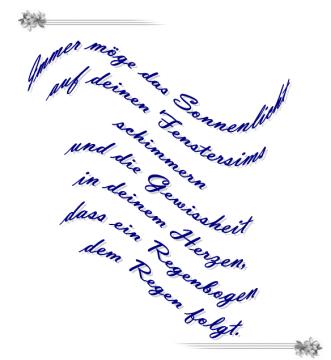 Immer möge das Sonnenlicht
auf deinen Fenstersims
schimmern
und die Gewissheit
in deinem Herzen,
dass ein Regenbogen
dem Regen folgt.